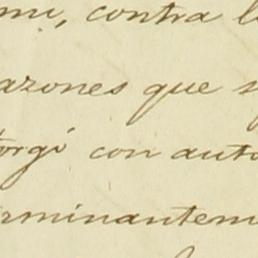 mi, contra l
azones que s
torgó con auto
rminantem